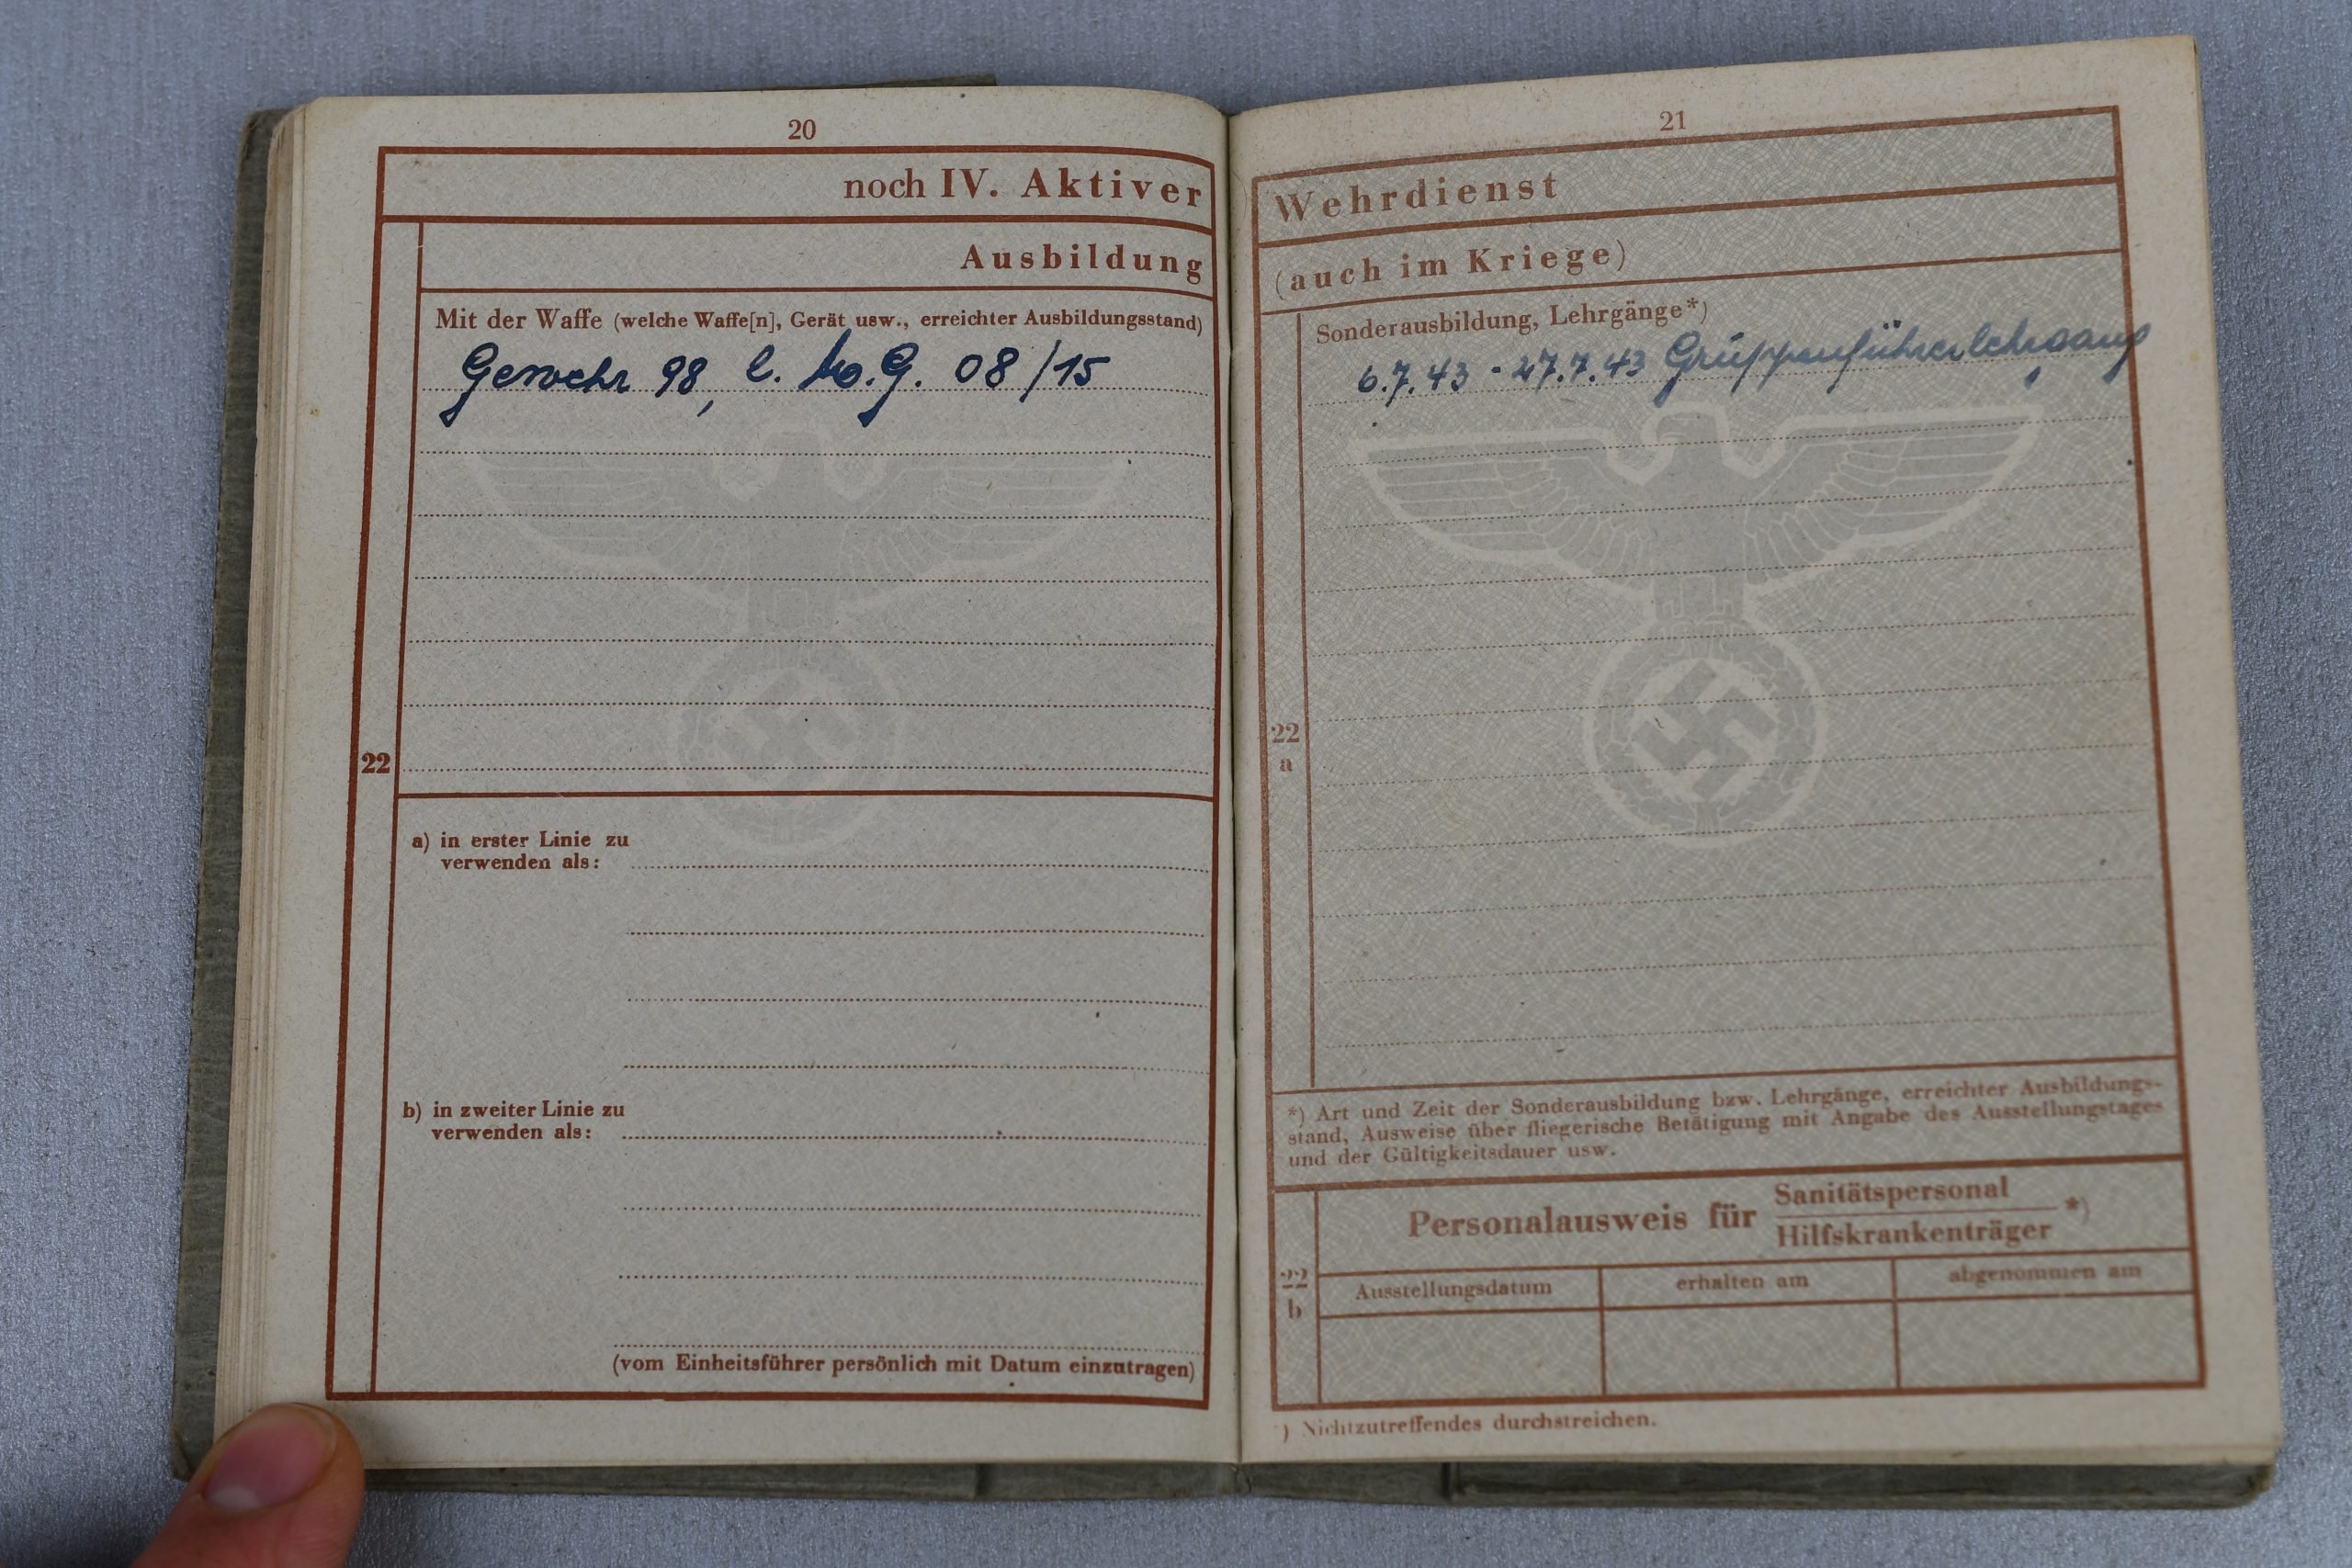 20
noch IV. Aktiver
Ausbildung
Mit der Waffe (welche Waffe[n], Gerät usw., erreichter Ausbildungsstand)
Gewehr 98, l. M.G. 08/15
22
a) in erster Linie zu
verwenden als:
b) in zweiter Linie zu
verwenden als:
(vom Einheitsführer persönlich mit Datum einzutragen)
21
Wehrdienst
(auch im Kriege)
Sonderausbildung, Lehrgänge*)
6.7.43 - 27.7.43 Gruppenführerlehrgang
22
a
*) Art und Zeit der Sonderausbildung bzw. Lehrgänge, erreichter Ausbildungs-
stand, Ausweise über fliegerische Betätigung mit Angabe des Ausstellungstages
und der Gültigkeitsdauer usw.
Personalausweis für Sanitätspersonal *)
Hilfskrankenträger
22
b
Ausstellungsdatum erhalten am abgenommen am
*) Nichtzutreffendes durchstreichen.